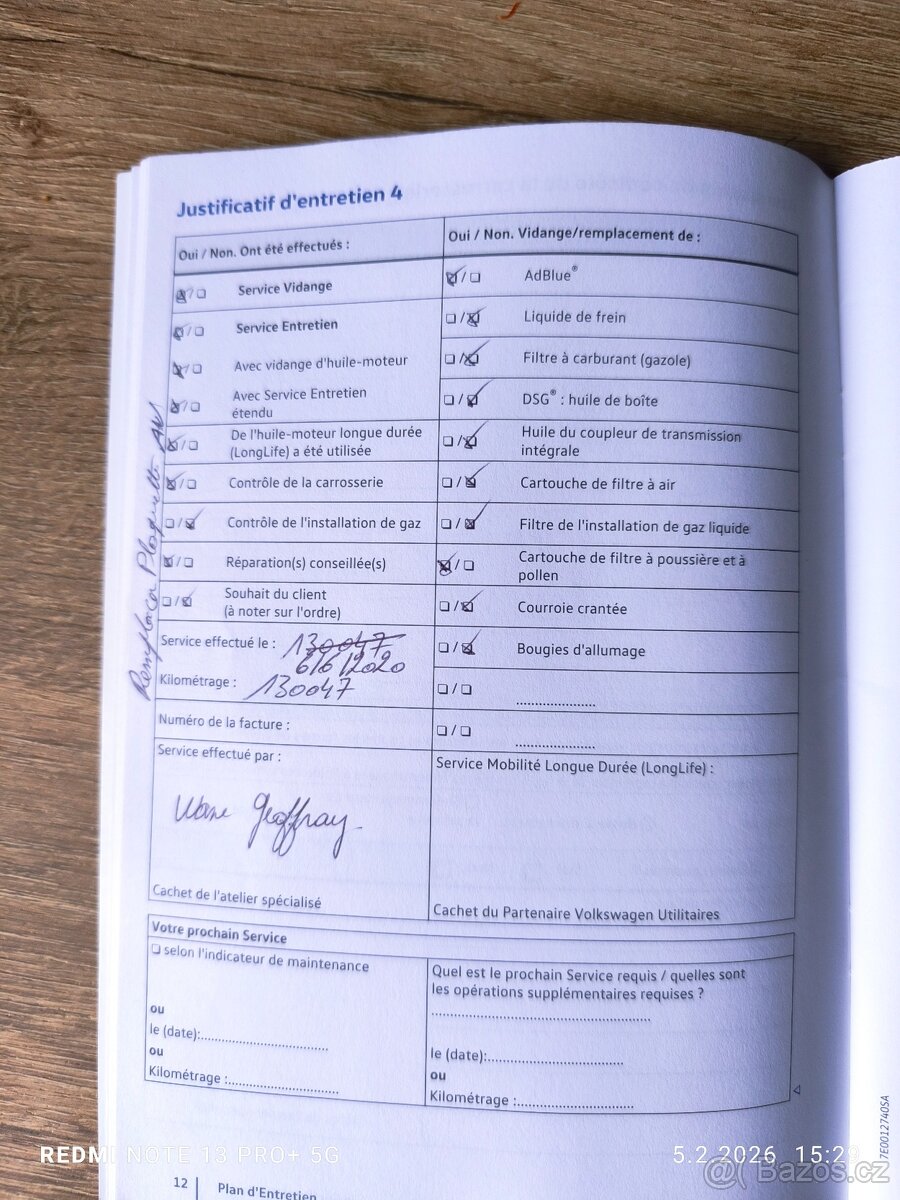 Justificatif d'entretien 4
Oui / Non. Ont été effectués :
Service Vidange
Service Entretien
Avec vidange d'huile-moteur
Avec Service Entretien
étendu
De l'huile-moteur longue durée
(LongLife) a été utilisée
Contrôle de la carrosserie
Contrôle de l'installation de gaz
Réparation(s) conseillée(s)
Souhait du client
(à noter sur l'ordre)
Service effectué le : 130047
6/6/2020
Kilométrage : 130047
Numéro de la facture :
Service effectué par :
Geoffray
Cachet de l'atelier spécialisé
Oui / Non. Vidange/remplacement de :
AdBlue®
Liquide de frein
Filtre à carburant (gazole)
DSG® : huile de boîte
Huile du coupleur de transmission
intégrale
Cartouche de filtre à air
Filtre de l'installation de gaz liquide
Cartouche de filtre à poussière et à
pollen
Courroie crantée
Bougies d'allumage
Service Mobilité Longue Durée (LongLife) :
Cachet du Partenaire Volkswagen Utilitaires
Votre prochain Service
selon l'indicateur de maintenance
ou
le (date):
ou
Kilométrage :
Quel est le prochain Service requis / quelles sont
les opérations supplémentaires requises ?
le (date):
ou
Kilométrage :
12 Plan d'Entretien
7E0012740SA
REDMI NOTE 13 PRO+ 5G
5.2.2026 15:29
Bazoš.cz